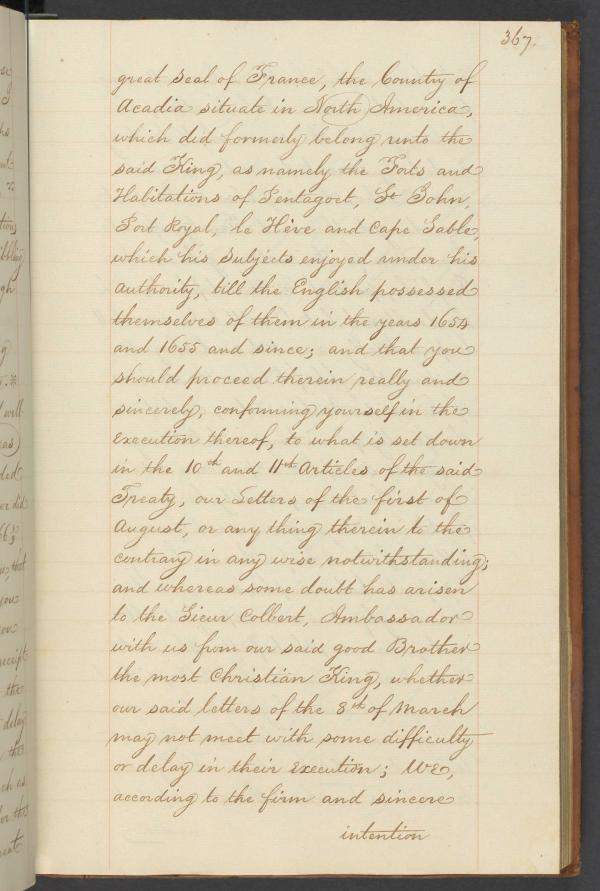 367.
great Seal of France, the Country of
Acadia situate in North America,
which did formerly belong unto the
said King, as namely the Forts and
Habitations of Pentagoet, St John,
Port Royal, le Hève and Cape Sable,
which his Subjects enjoyed under his
authority, till the English possessed
themselves of them in the years 1654
and 1655 and since; and that you
should proceed therein really and
sincerely, conforming yourself in the
Execution thereof, to what is set down
in the 10th and 11th Articles of the said
Treaty, our Letters of the first of
August, or any thing therein to the
contrary in any wise notwithstanding;
and whereas some doubt has arisen
to the Sieur Colbert, Ambassador
with us from our said good Brother
the most Christian King, whether
our said letters of the 8th of March
may not meet with some difficulty
or delay in their Execution; We,
according to the firm and sincere
intention